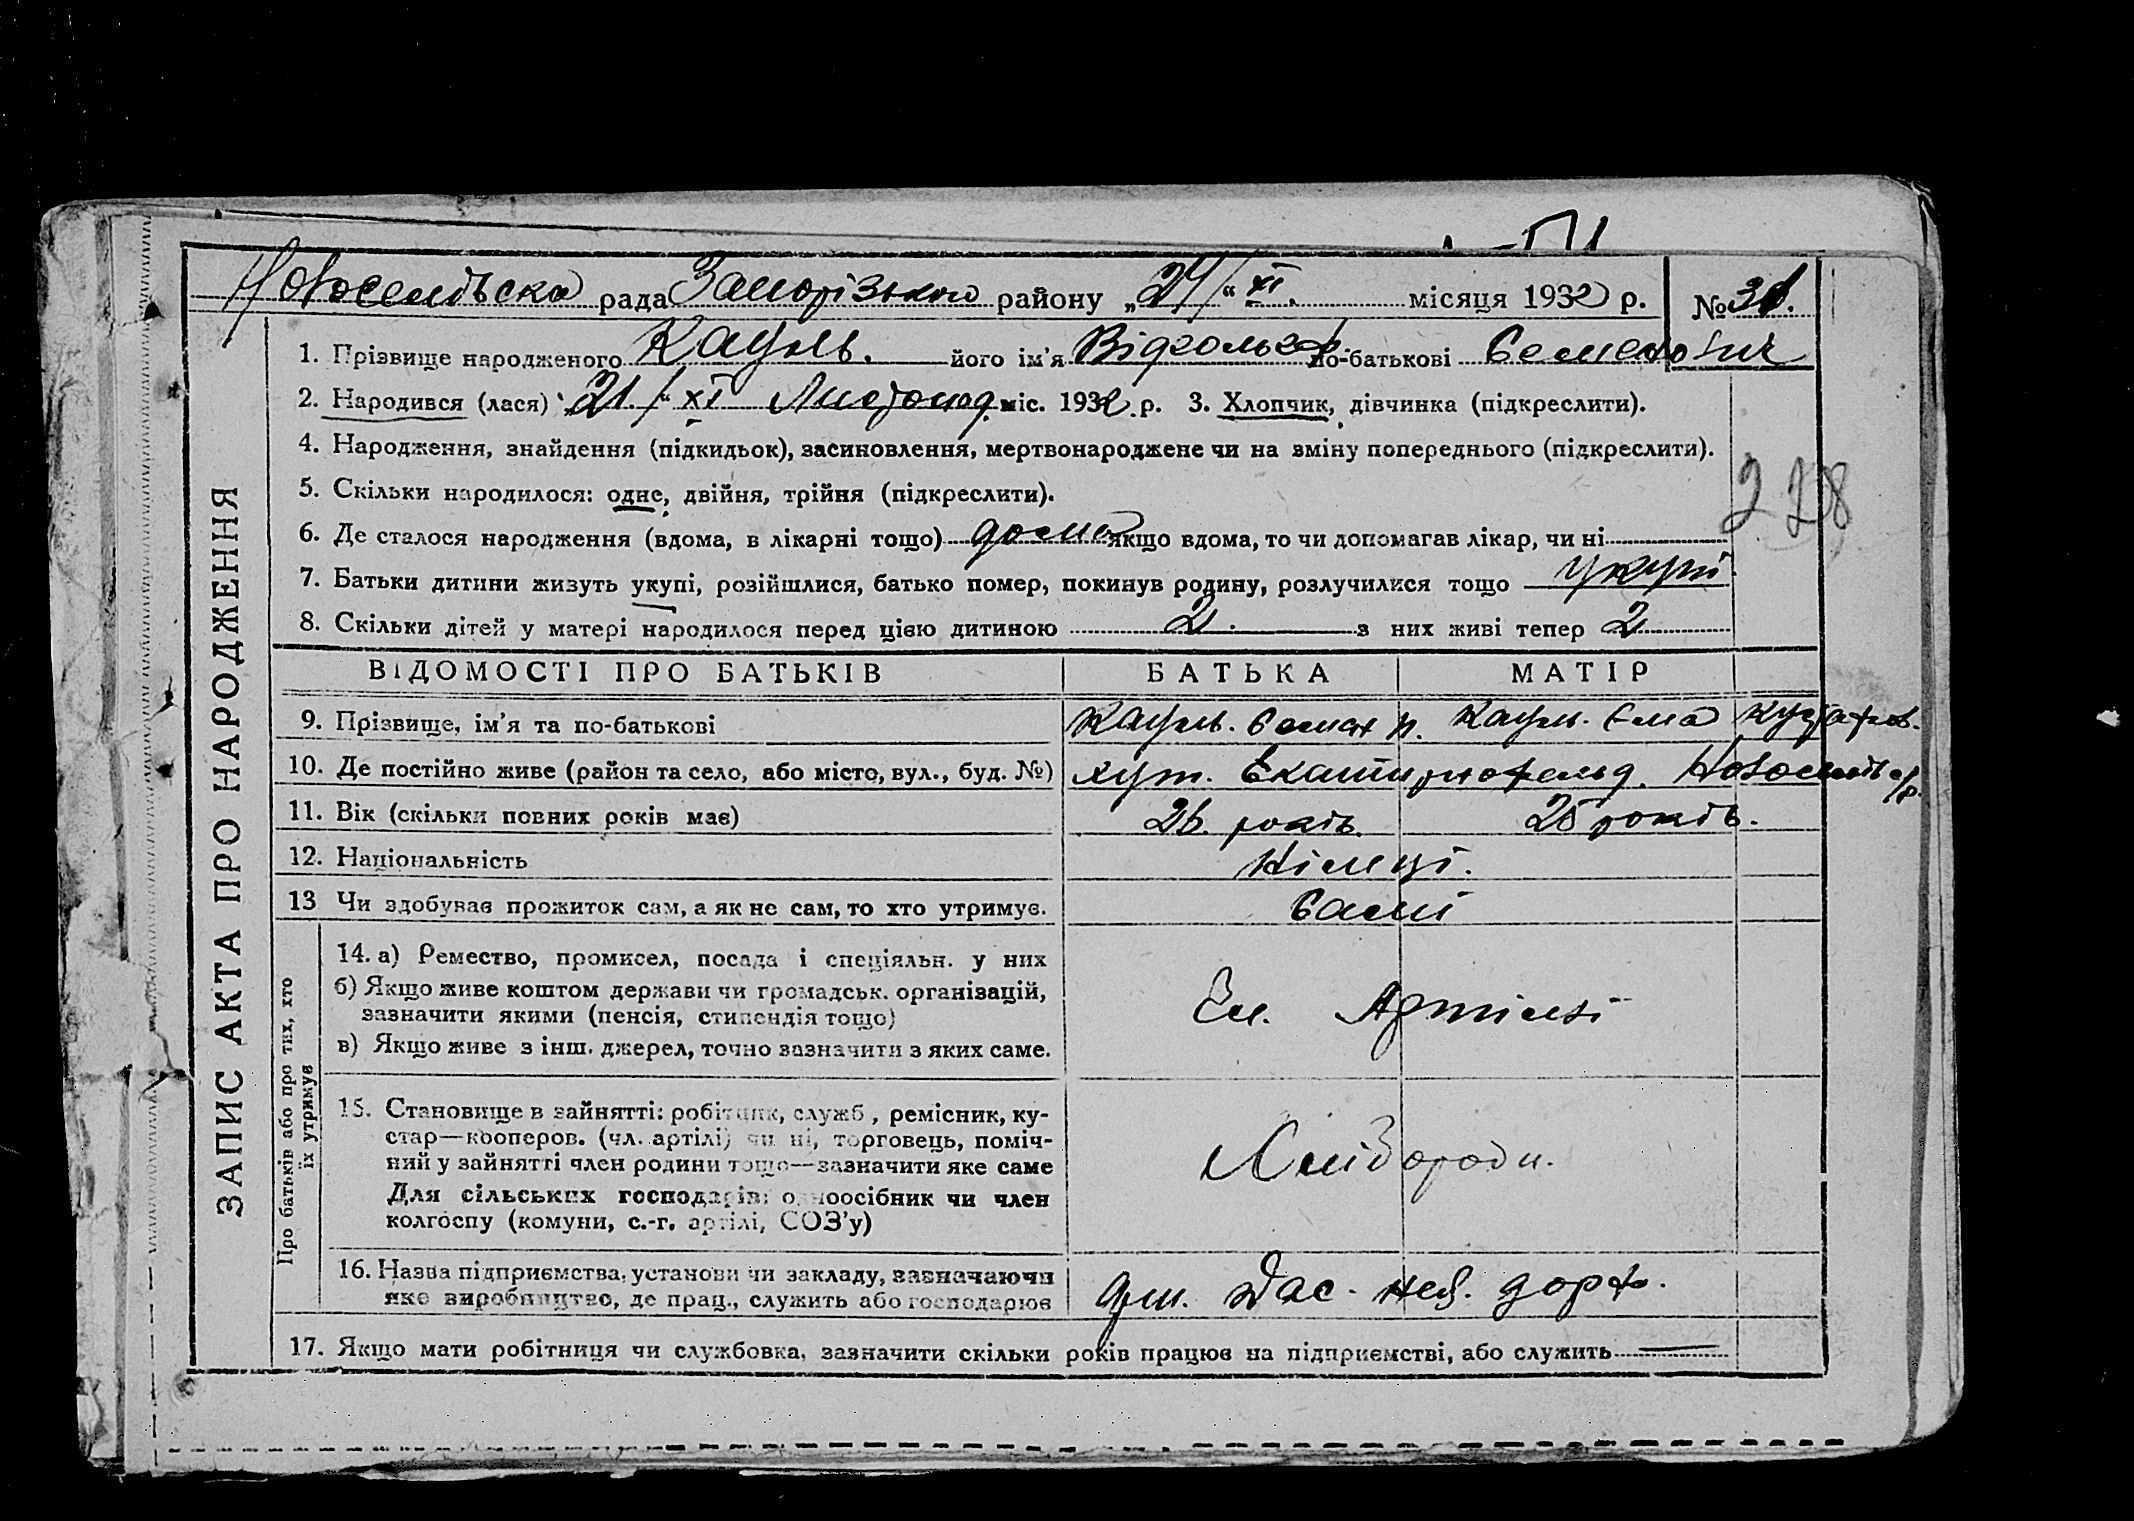 Новоселівська рада Запорізького району „24/“ XI. місяця 1932 р. № 31.
1. Прізвище народженого Кауль. його ім'я по-батькові Семенович
2. Народився (лася) „21/“ XI Листопад. міс. 1932 р. 3. Хлопчик, дівчинка (підкреслити).
4. Народження, знайдення (підкидьок), засиновлення, мертвонароджене чи на зміну попереднього (підкреслити).
5. Скільки народилося: одне, двійня, трійня (підкреслити).
6. Де сталося народження (вдома, в лікарні тощо) дома якщо вдома, то чи допомагав лікар, чи ні
7. Батьки дитини живуть укупі, розійшлися, батько помер, покинув родину, розлучилися тощо укупі
8. Скільки дітей у матері народилося перед цією дитиною 2. з них живі тепер 2
278
ЗАПИС АКТА ПРО НАРОДЖЕННЯ
ВІДОМОСТІ ПРО БАТЬКІВ БАТЬКА МАТІР
9. Прізвище, ім'я та по-батькові Кауль. Кауль. Ема
10. Де постійно живе (район та село, або місто, вул., буд. №) хут. Екатиринофельд. Новоселів с/р.
11. Вік (скільки повних років має) 26. років. 25 років.
12. Національність Німці.
13 Чи здобував прожиток сам, а як не сам, то хто утримує. Самі
Про батьків або про тих, хто
їх утримує
14. а) Ремество, промисел, посада і спеціяльн. у них
б) Якщо живе коштом держави чи громадськ. організацій,
зазначити якими (пенсія, стипендія тощо)
в) Якщо живе з інш. джерел, точно зазначити з яких саме.
Чл. Артілі
15. Становище в зайнятті: робітник, служб., ремісник, ку-
стар—кооперов. (чл. артілі) чи ні, торговець, поміч-
ний у зайнятті член родини тощо—зазначити яке саме
Для сільських господарів: одноосібник чи член
колгоспу (комуни, с.-г. артілі, СОЗ'у)
Хлібороди.
16. Назва підприємства, установи чи закладу, зазначаючи
яке виробництво, де прац., служить або господарює
дорф.
17. Якщо мати робітниця чи службовка, зазначити скільки років працює на підприємстві, або служить —